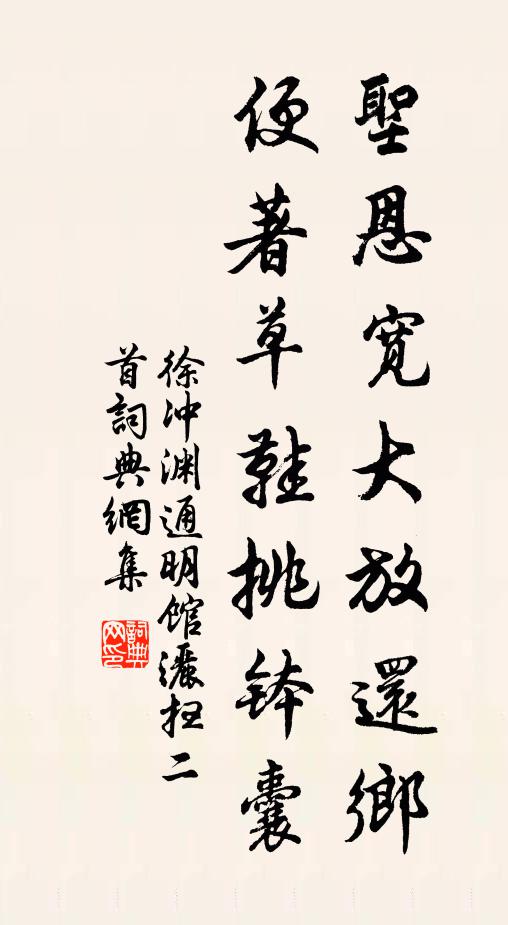 聖恩寬大放還鄉
便著草鞋挑鉢囊
徐沖淵通明館灑扫二
首詞典網集
詞典
网印